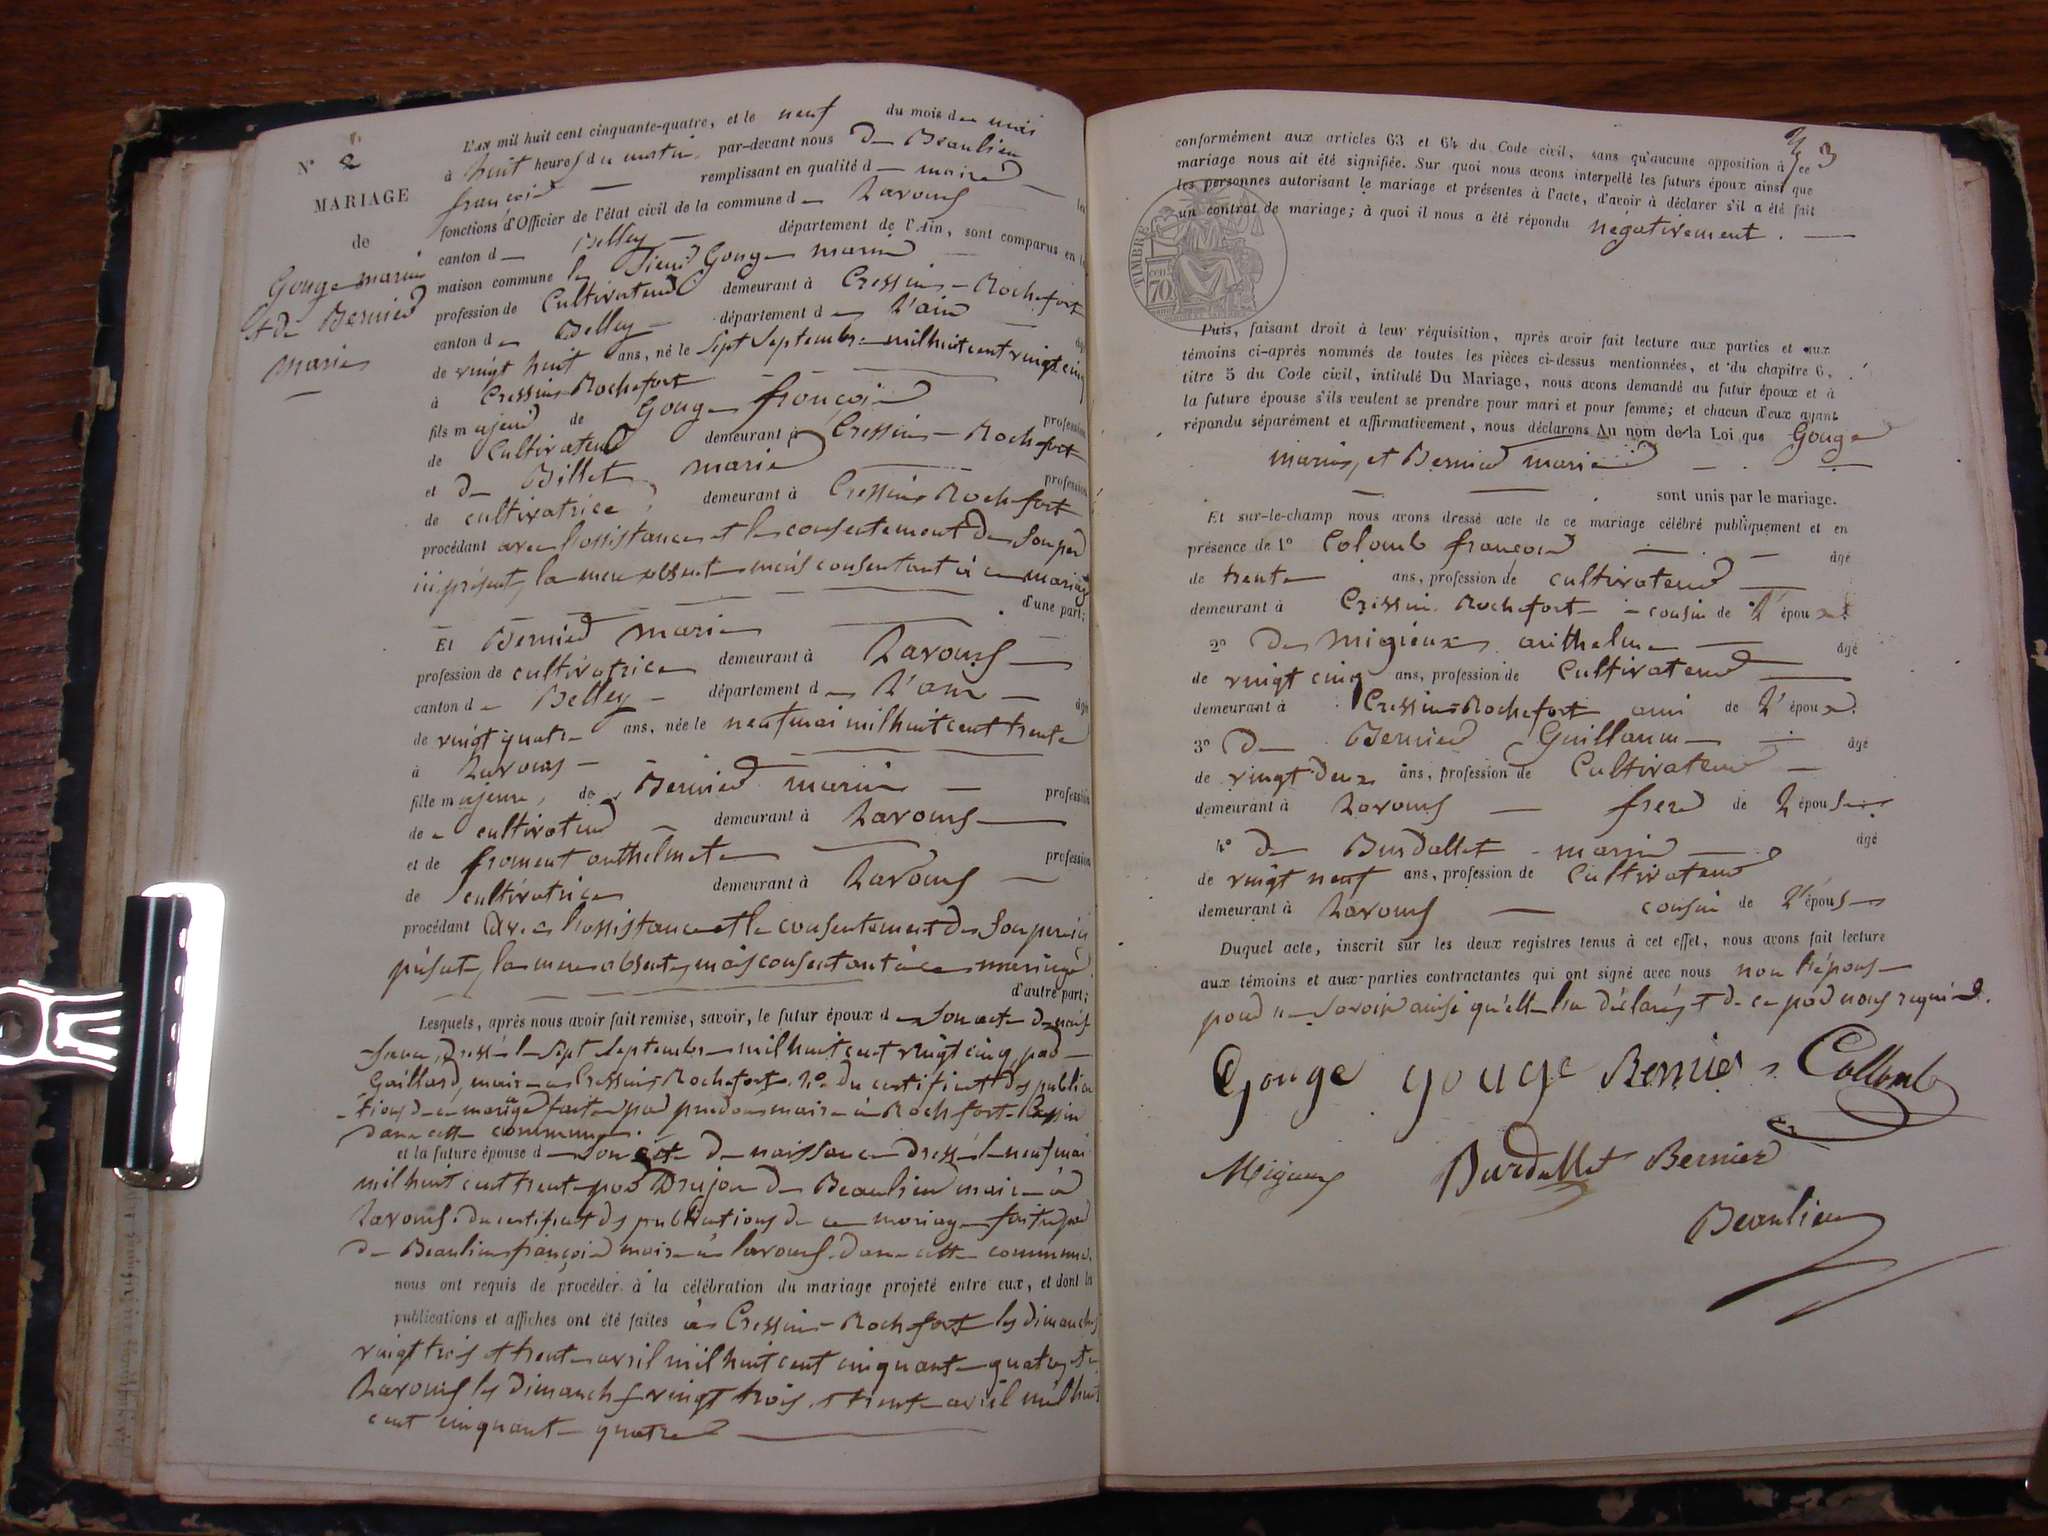 N° 2
MARIAGE
de
Gouge marin
et de Bernier
marie
L'an mil huit cent cinquante-quatre, et le neuf du mois de mai
à huit heures du matin, par-devant nous De Beaulieu
françois remplissant en qualité de maire les
fonctions d'Officier de l'état civil de la commune de Lavours
canton de Belley département de l'Ain, sont comparus en la
maison commune le Sieur Gouge marin
profession de Cultivateur demeurant à Cressin-Rochefort
canton de Belley département de L'ain âgé
de vingt huit ans, né le Sept Septembre mil huit cent vingt cinq
à Cressin Rochefort
fils majeur de Gouge françois profession
de Cultivateur demeurant à Cressin-Rochefort
et de Billet marie profession
de cultivatrice, demeurant à Cressin Rochefort
procédant avec l'assistance et le consentement de Son père
ici présent, la mère absente mais consentant à ce mariage
d'une part;
Et Bernier marie
profession de cultivatrice demeurant à Lavours
canton de Belley département de L'ain âgé
de vingt quatre ans, née le neuf mai mil huit cent trente
à Lavours
fille majeure, de Bernier marin profession
de cultivateur demeurant à Lavours
et de froment anthelmete profession
de cultivatrice demeurant à Lavours
procédant avec l'assistance et le consentement de Son père ici
présent, la mère absente, mais consentant à ce mariage
d'autre part;
Lesquels, après nous avoir fait remise, savoir, le futur époux de Son acte de nais
sance, dressé le Sept Septembre mil huit cent vingt cinq, par
Gaillard, maire à Cressin-Rochefort. 2° du certificat des publica
tions de ce mariage faites par maire à Rochefort-Cressin
dans cette commune.
et la future épouse de Son acte de naissance dressé le neuf mai
mil huit cent trente par Drujon De Beaulieu maire à
Lavours. du certificat des publications de ce mariage faites par
De Beaulieu françois maire à lavours. dans cette commune.
nous ont requis de procéder à la célébration du mariage projeté entre eux, et dont les
publications et affiches ont été faites à Cressin-Rochefort les dimanches
vingt trois et trente avril mil huit cent cinquante quatre, et à
Lavours les dimanches vingt trois et trente avril mil huit
cent cinquante quatre
3
conformément aux articles 63 et 64 du Code civil, sans qu'aucune opposition à ce
mariage nous ait été signifiée. Sur quoi nous avons interpellé les futurs époux ainsi que
les personnes autorisant le mariage et présentes à l'acte, d'avoir à déclarer s'il a été fait
un contrat de mariage; à quoi il nous a été répondu négativement.
TIMBRE
70 cen
Puis, faisant droit à leur réquisition, après avoir fait lecture aux parties et aux
témoins ci-après nommés de toutes les pièces ci-dessus mentionnées, et du chapitre 6,
titre 5 du Code civil, intitulé Du Mariage, nous avons demandé au futur époux et à
la future épouse s'ils veulent se prendre pour mari et pour femme; et chacun d'eux ayant
répondu séparément et affirmativement, nous déclarons Au nom de la Loi que Gouge
marin, et Bernier marie
sont unis par le mariage.
Et sur-le-champ nous avons dressé acte de ce mariage célébré publiquement et en
présence de 1° Colomb françois âgé
de trente ans, profession de cultivateur
demeurant à Cressin Rochefort cousin de L'époux.
2° De Migieux anthelme âgé
de vingt cinq ans, profession de Cultivateur
demeurant à Cressin-Rochefort ami de L'époux.
3° De Bernier Guillaume âgé
de vingt deux ans, profession de Cultivateur
demeurant à Lavours frere de L'épouse
4° De Burdallet marin âgé
de vingt neuf ans, profession de Cultivateur
demeurant à Lavours cousin de L'épouse
Duquel acte, inscrit sur les deux registres tenus à cet effet, nous avons fait lecture
aux témoins et aux parties contractantes qui ont signé avec nous non L'épouse
pour ne Savoir ainsi qu'elle l'a déclaré, de ce par nous requise.
Gouge gouge Bernier Collomb
Migieux Burdallet Bernier
Beaulieu